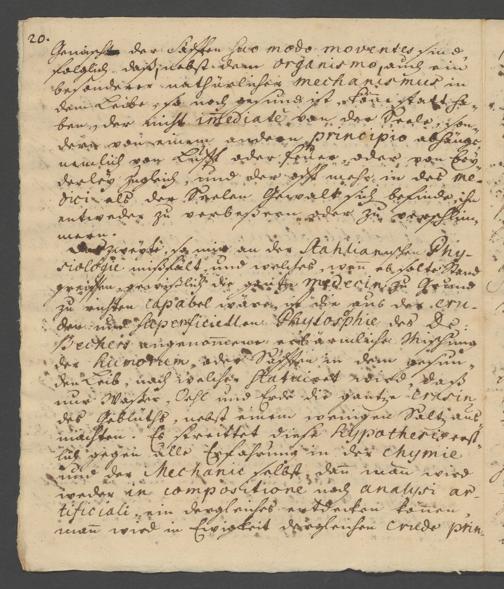 20.
Gemüth der Säfften suo modo moventes sind
folglich, daß nebst dem organismo, auch ein
besonderer nathürlicher mechanismus in
dem Leibe, so noch gesund ist, könne statt ha-
ben, der nicht imediate von der Seele, son-
dern von einem andern principio abhänge
nemlich von Lufft oder Feuer, oder von bey-
derley zugleich, und der offt mehr in des me-
dici als der Seelen Gewalt sich befinde, ihn
entweder zu verbeßern, oder zu verschlim-
mern.
Das zweyte, so mir an der Stahlianischen Phy-
siologie mißfält, und welches, wen es solte Stand
greiffen, gewißlich die medecin zu Grund
zu richten capabel wäre, ist die aus der cru-
den und superficiellen Phylosophie des D:
Bechers angenommene erbärmliche Mischung
der humorum, oder Säfften in dem gesun-
den Leib, nach welcher statuiret wird, daß
nur Waßer, Oehl und Erde die gantze crasin
des Geblüths, nebst einem wenigen Saltz aus
machten. Es streittet diese hypothesis erst-
lich gegen alle Erfahrung in der chymie
und der Mechanic selbst, dan man wird
weder in compositione noch analysi ar-
tificiali, ein dergleichen entdecken können,
man wird in Ewigkeit dergleichen crude prin-